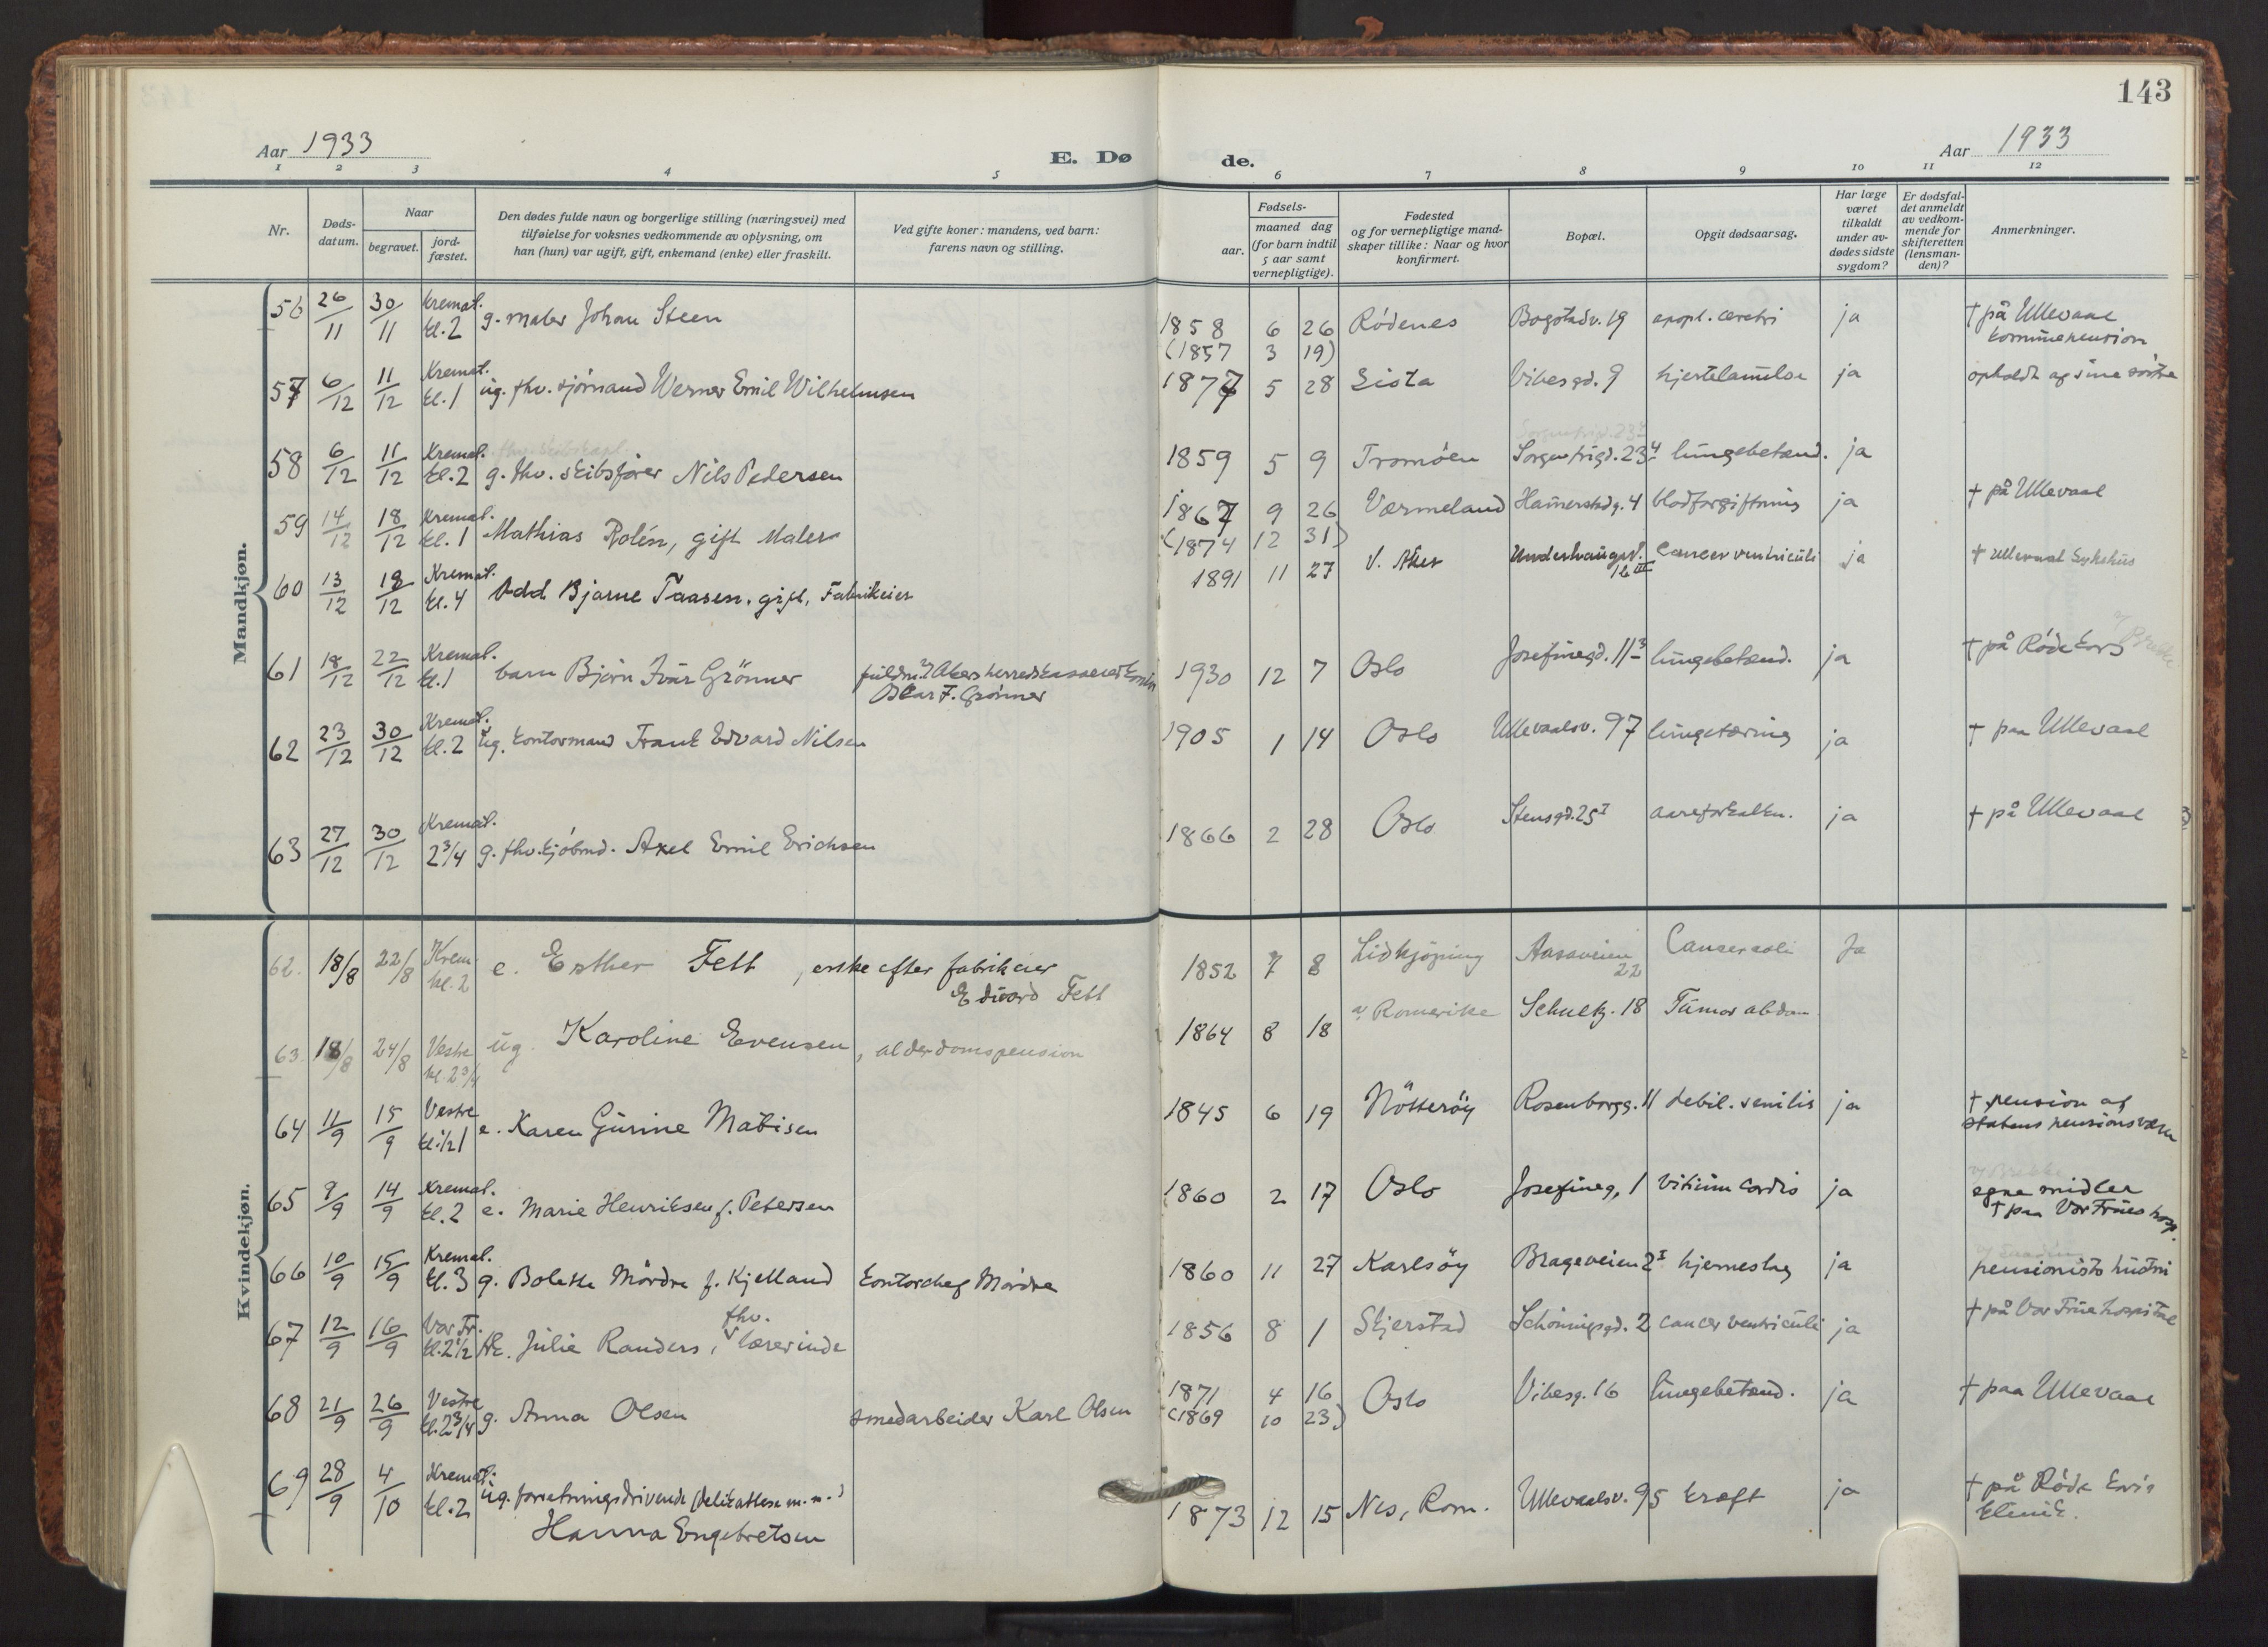 143
Aar 1933
E. Dø
de.
Aar 1933
1 2 3 4 5 6 7 8 9 10 11 12
Nr.
Døds-
datum.
Naar
begravet.
jord-
fæstet.
Den dødes fulde navn og borgerlige stilling (næringsvei) med
tilføielse for voksnes vedkommende av oplysning, om
han (hun) var ugift, gift, enkemand (enke) eller fraskilt.
Ved gifte koner: mandens, ved barn:
farens navn og stilling.
Fødsels-
aar.
maaned dag
(for barn indtil
5 aar samt
vernepligtige).
Fødested
og for vernepligtige mand-
skaper tillike: Naar og hvor
konfirmert.
Bopæl.
Opgit dødsaarsag.
Har læge
været
tilkaldt
under av-
dødes sidste
sygdom?
Er dødsfal-
det anmeldt
av vedkom-
mende for
skifteretten
(lensman-
den)?
Anmerkninger.
Mandkjøn.
56 26/11 30/11 Kremat. kl. 2 g. maler Johan Steen 1858 6 26 (1857 3 19) Rødenes Bogstadv. 19 apopl. cerebri ja † på Ullevaal
57 6/12 11/12 Kremat. kl. 1 ug. fhv. sjømand Werner Emil Wilhelmsen 1877 5 28 Lista Vibesgd. 9 hjertelammelse ja opholdt af sine
58 6/12 11/12 Kremat. kl. 2 g. fhv. skibsfører Nils Pedersen 1859 5 9 Tromøen Sorgenfrigd. 23 4 lungebetænd. ja
59 14/12 18/12 Kremat. kl. 1 Mathias Rolén, gift Maler 1867 9 26 (1874 12 31) Værmeland Hamerstadg. 4 blodforgiftning ja † på Ullevaal
60 13/12 18/12 Kremat. kl. 4 Odd Bjarne Taasen, gift, Fabrikeier 1891 11 27 V. Aker Underhaugsv. 16 III Cancer ventriculi ja † Ullevaal Sykehus
61 18/12 22/12 Kremat. kl. 1 barn Bjørn Ivar Grønner fuldm. Akers herredskasserer
Oskar F. Grønner 1930 12 7 Oslo Josefinegd. 11 3 lungebetænd. ja † på Røde Kors
62 23/12 30/12 Kremat. kl. 2 ug. kontormand Frank Edvard Nilsen 1905 1 14 Oslo Ullevaalsv. 97 lungetæring ja † paa Ullevaal
63 27/12 30/12 Kremat. 2 3/4 g. fhv. kjøbmd. Axel Emil Erichsen 1866 2 28 Oslo Stensgd. 25 I aareforkalkn. ja † på Ullevaal
Kvindekjøn.
62. 18/8 22/8 Krem. kl. 2 e. Esther Fett, enke efter fabrikeier
Edvard Fett 1852 7 8 Lidkjöping Aasaveien 22 Cancer coli Ja
63. 18/8 24/8 Vestre kl. 2 3/4 ug. Karoline Evensen, alderdomspension 1864 8 18 Romerike Schultzg. 18 Tumor abdom
64 11/9 15/9 Vestre kl. 1/2 1 e. Karen Gurine Matisen 1845 6 19 Nøtterøy Rosenborgg. 11 debil. senilis ja † pension af
statens pensionsvæsen
65 9/9 14/9 Kremat. kl. 2 e. Marie Henriksen f. Petersen 1860 2 17 Oslo Josefineg. 1 vitium cordis ja egne midler
† paa Vor Frues hosp.
66 10/9 15/9 Kremat. kl. 3 g. Bolette Mørdre f. Kjelland kontorchef Mørdre 1860 11 27 Karlsøy Brageveien 2 I hjerneslag ja pensionists hustru
67 12/9 16/9 Vor Fr. kl. 2 1/2 Julie Randers, fhv. lærerinde 1856 8 1 Skjerstad Schøningsgd. 2 cancer ventriculi ja † på Vor Frue hospital
68 21/9 26/9 Vestre kl. 2 3/4 g. Anna Olsen smedarbeider Karl Olsen 1871 4 16 (1869 10 23) Oslo Vibesg. 16 lungebetænd. ja † paa Ullevaal
69 28/9 4/10 Kremat. kl. 2 ug. forretningsdrivende (delikatesse m.m.)
Hanna Engebretsen 1873 12 15 Nes, Rom. Ullevaalsv. 95 kræft ja † på Røde Kors
klinik.